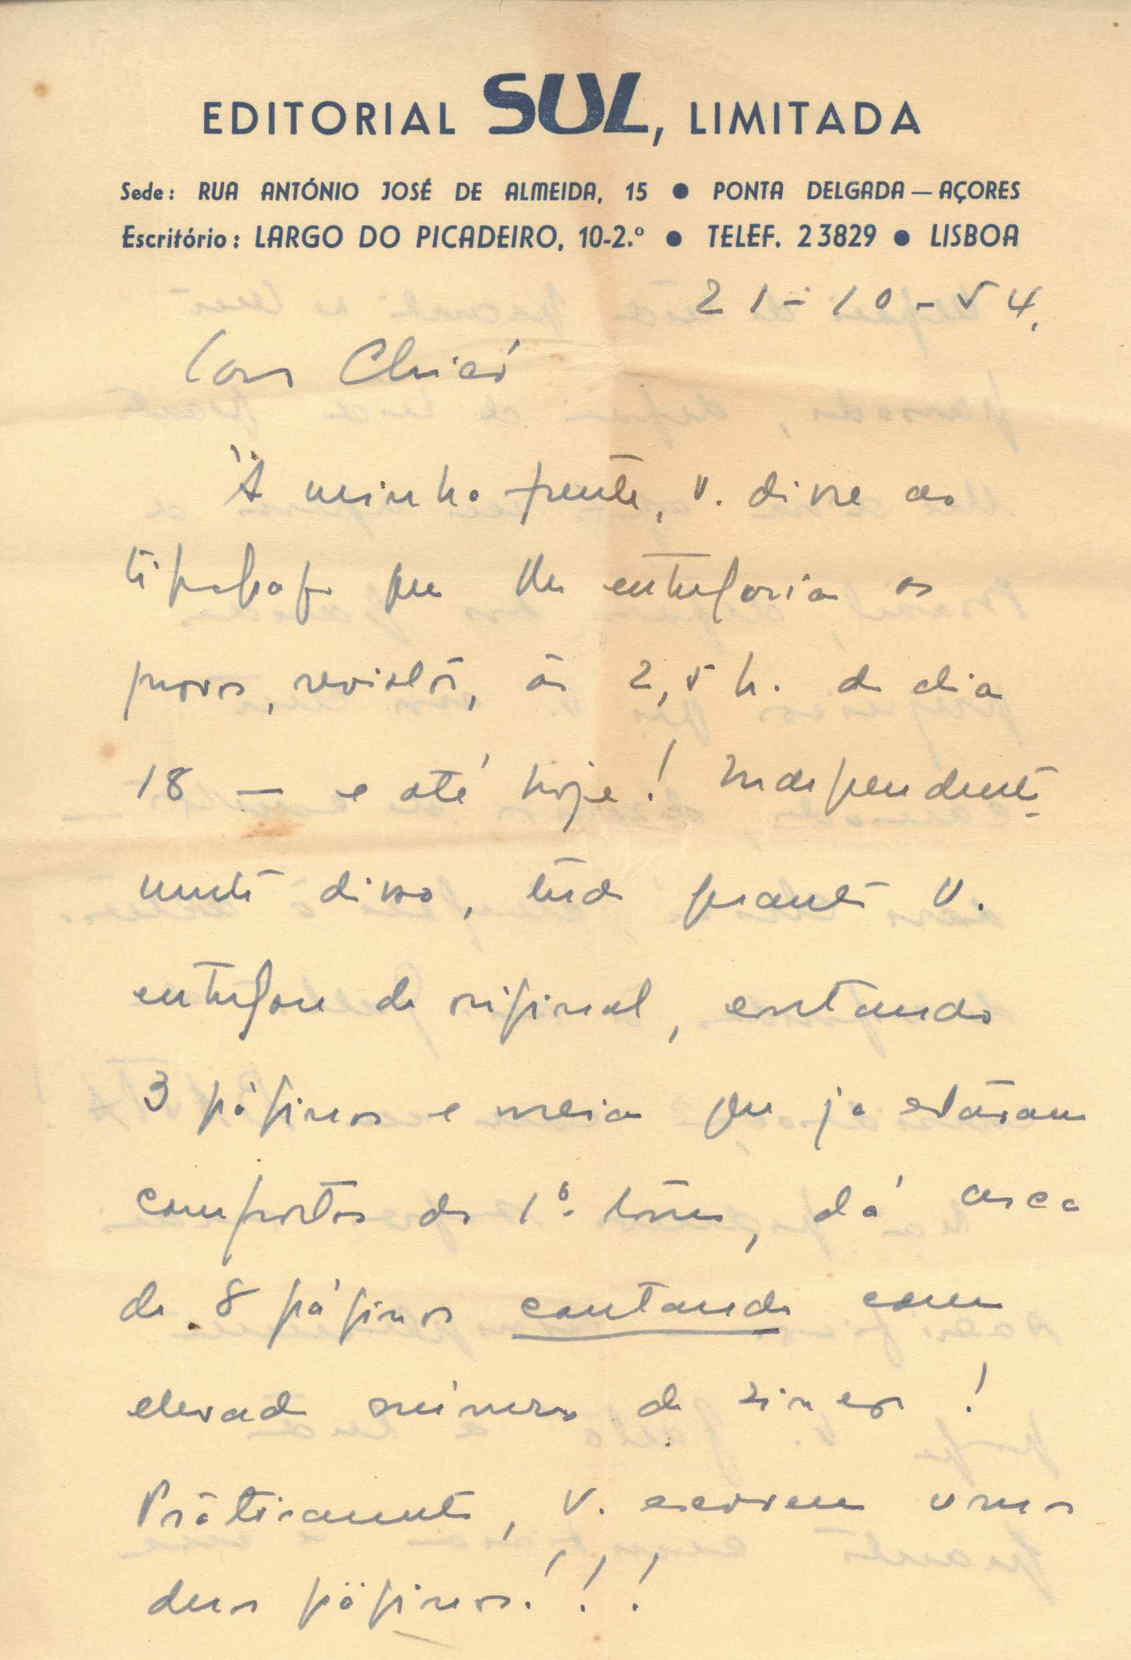 EDITORIAL SUL, LIMITADA
Sede: RUA ANTÓNIO JOSÉ DE ALMEIDA, 15 ● PONTA DELGADA — AÇORES
Escritório: LARGO DO PICADEIRO, 10-2.º ● TELEF. 23829 ● LISBOA
21-10-54.
Caro Chicó
À minha frente, V. disse ao
tipógrafo que lhe entregaria as
provas, revistas, às 2,5 h. do dia
18 — e até hoje! Independente-
mente disso, tudo quanto V.
entregou de original, contando
3 páginas e meia que já estavam
compostas do 1º. tomo, dá cerca
de 8 páginas contando com
elevado número de
Pràticamente, V. escreveu umas
duas páginas!!!